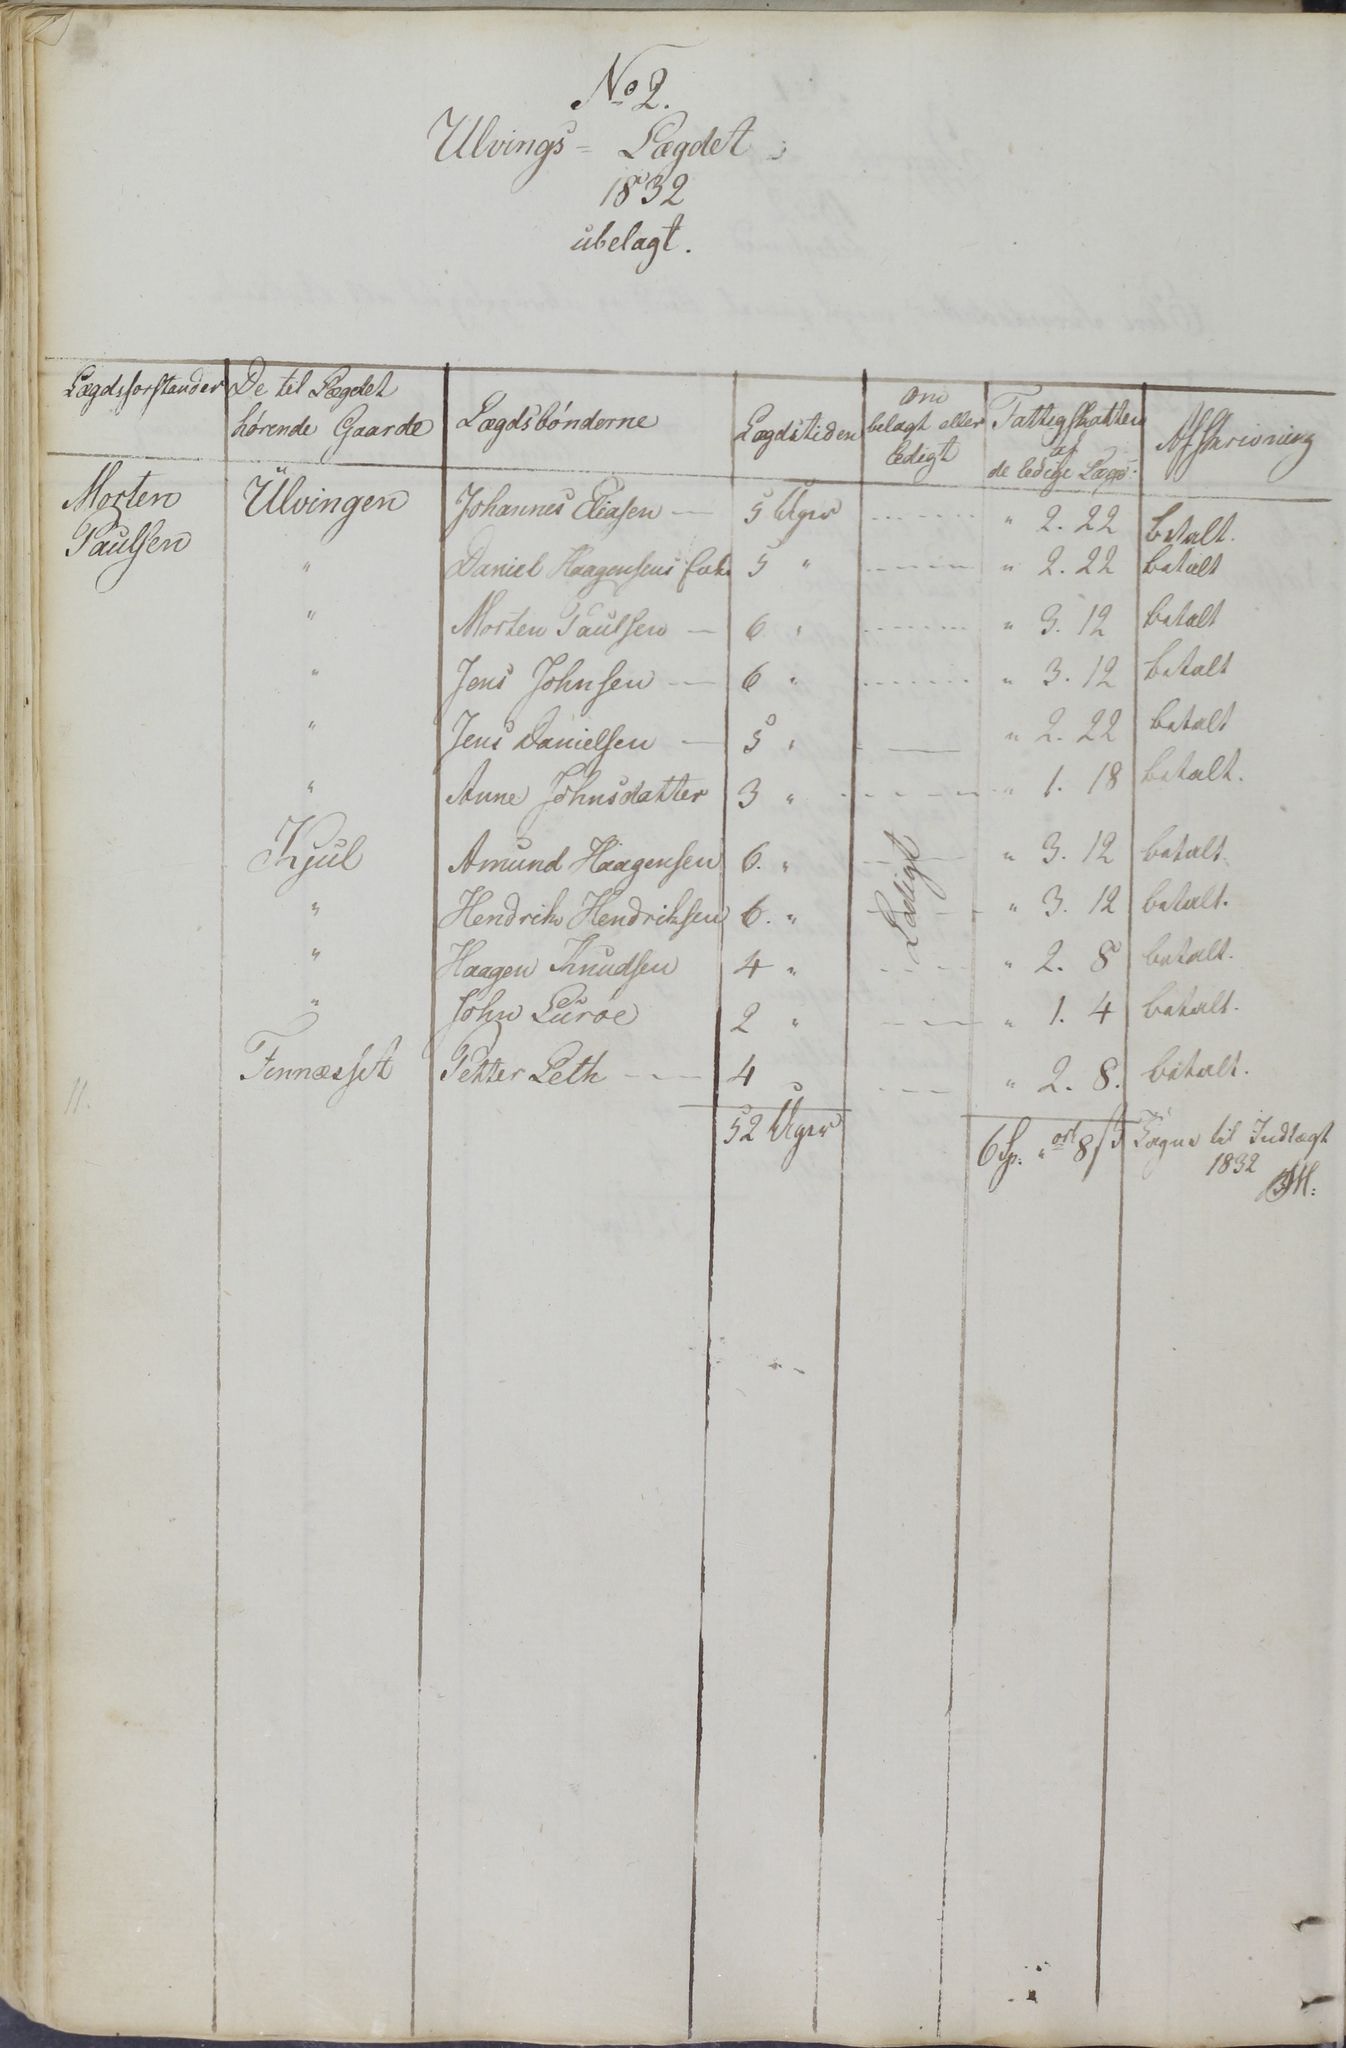 No 2.
Ulvings = Lægdet
1832
ubelagt.
Lægdsforstander | De til Lægdet hørende Gaarde | Lægdsbønderne | Lægdstiden | om belagt eller ledigt | Fattigskatten af de ledige Lægd | Afskrivning
Morten Paulsen | Ulvingen | Johannes Eliasen — | 5 Uger | " 2. 22 | betalt.
" | Daniel Haagensens Enke | 5 " | " 2. 22 | betalt
" | Morten Paulsen — | 6 " | " 3. 12 | betalt
" | Jens Johnsen — | 6 " | " 3. 12 | betalt
" | Jens Danielsen — | 5 " | " 2. 22 | betalt
" | Anne Johnsdatter | 3 " | " 1. 18 | betalt.
Kjul | Amund Haagensen | 6. " | Ledigt | " 3. 12 | betalt.
" | Hendrik Hendriksen | 6. " | " 3. 12 | betalt.
" | Haagen Knudsen | 4 " | " 2. 8 | betalt.
" | John Lurøe | 2 " | " 1. 4 | betalt.
11. | Finnæsset | Petter Leth — | 4 | " 2. 8. | betalt.
52 Uger | 6 Sp: " ort 8 ß | Tagne til Indtægt
1832